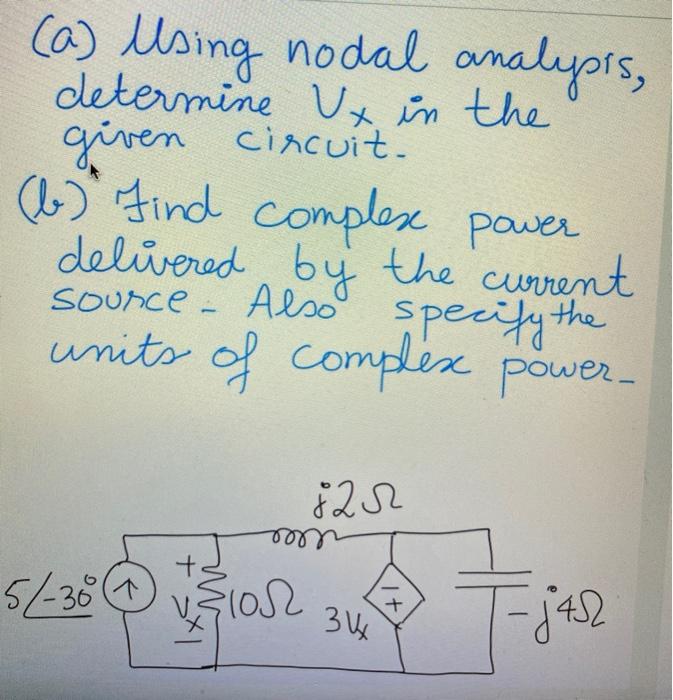 (a) Using nodal analysis,
determine Vx in the
given circuit.
(b) Find complex power
delivered by the current
source. Also specify the
units of complex power.
j2Ω
5∠-30° ↑ + Vx - 10Ω 3Vx - + -j4Ω